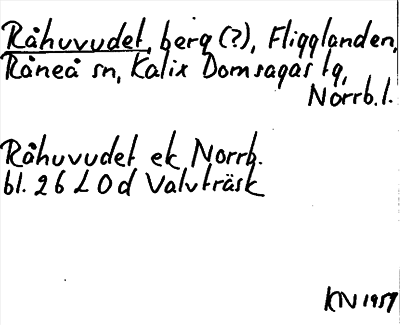 Råhuvudet, berg (?), Fligglanden,
Råneå sn, Kalix Domsagas tg,
Norrb.l.
Råhuvudet ek Norrb.
bl. 26 L 0d Valvträsk
KN 1957